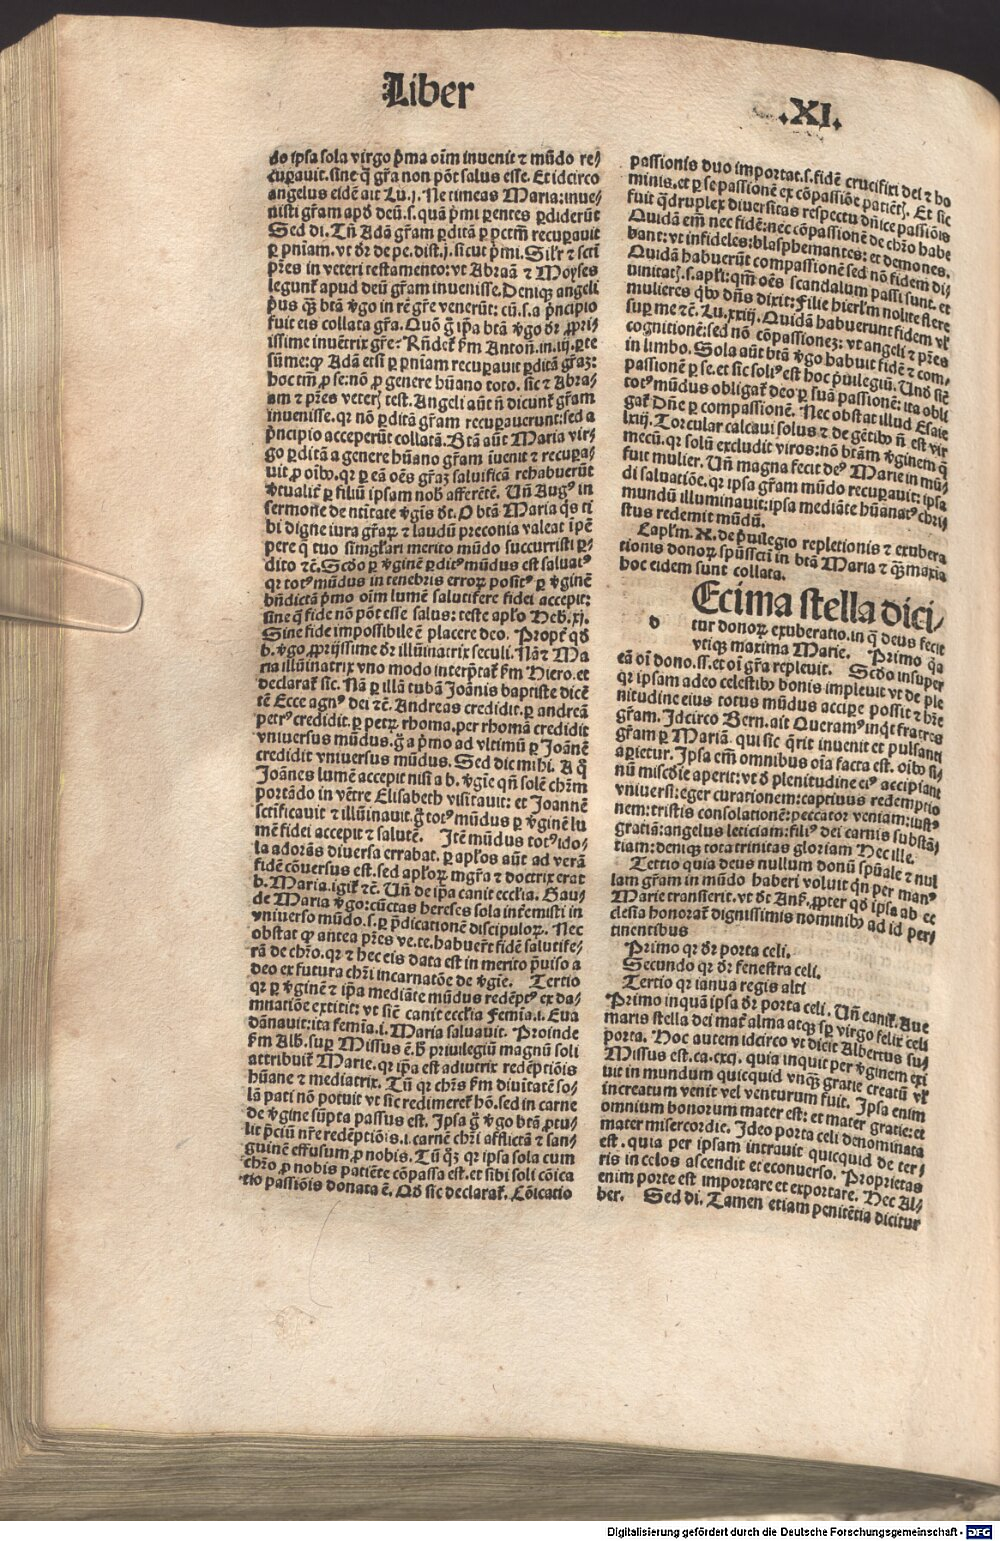 Liber
.XI.
do ipsa sola virgo p̃ma oĩm inuenit ⁊ mũdo re/
cuꝑauit. sine q̃ gr̃a non põt salus esse. Et idcirco
angelus eidẽ ait Lu.j. Ne timeas Maria: inue/
nisti gr̃am apđ deũ. s. quã p̃mi ꝑentes ꝑdiderũt
Sed di. Tñ Adã gr̃am ꝑditã ꝑ pctm̃ recuꝑauit
ꝑ pniam. vt đr de pe. dist.j. sicut p̃mi. Sil'r ⁊ scti
p̃res in veteri testamento: vt Abraã ⁊ Moyses
legunt̃ apud deũ gr̃am inuenisse. Deniqꝫ angeli
p̃us qꝫ btã v̾go in rẽ gr̃e venerũt: cũ. s. a p̃ncipio
fuit eis collata gr̃a. Quõ g̃ ip̃a btã v̾go đr ꝓpri/
issime inuẽtrix gr̃e? Rñdet̃ ẜm Antoñ. in.iij. ꝑte
sũme: ꝙ Adã etsi ꝑ pniam recuꝑauit ꝑditã gr̃aꝫ:
hoc tm̃ ꝓ se: nõ ꝓ genere hũano toto. sic ⁊ Abra/
am ⁊ p̃res veterꝭ test. Angeli aũt ñ dicunt̃ gr̃am
inuenisse. qr nõ ꝑditã gr̃am recuꝑauerunt: sed a
p̃ncipio acceperũt collatã. Btã aũt Maria vir/
go ꝑditã a genere hũano gr̃am iuenit ⁊ recuꝑa/
uit ꝓ oĩbꝰ. qr ꝑ eã oẽs gr̃aꝫ saluificã rehabuerũt
v̾tualit̃ ꝑ filiũ ipsam nob̃ afferẽtẽ. Uñ Augꝰ in
sermone de ntitate v̾gĩs đt. O btã Maria q̃s ti
bi digne iura gr̃aꝝ ⁊ laudũ preconia valeat ipẽ
pere q̃ tuo singl'ari merito mũdo succurristi ꝑ/
dito ⁊c̃. Scđo ꝑ v̾ginẽ ꝑditꝰ mũdus est saluatꝰ
qr totꝰ mũdus in tenebris erroꝝ positꝰ ꝑ v̾ginẽ
bñdictã p̃mo oĩm lumẽ salutifere fidei accepit:
sine q̃ fide nõ põt esse salus: teste aplo Heb.xj.
Sine fide impossibile ẽ placere deo. Propt̃ qđ
b. v̾go ꝓprijssime đr illuĩatrix seculi. Nã ⁊ Ma
ria illuĩatrix vno modo interp̃tat̃ ẜm Hiero. et
declarat̃ sic. Nã ꝑ illã tubã Joãnis baptiste dicẽ
tẽ Ecce agnꝰ dei ⁊c̃. Andreas credidit. ꝑ andreã
petrꝰ credidit. ꝑ petꝝ rhoma. per rhomã credidit
vniuersus mũdus. g̃ a p̃mo ad vltimũ ꝑ Joãnẽ
credidit vniuersus mũdus. Sed dic mihi. A q̃
Joãnes lumẽ accepit nisi a b. v̾gĩe qñ solẽ chr̃m
portãdo in vẽtre Elisabeth visitauit: et Joannẽ
sctificauit ⁊ illuĩauit. g̃ totꝰ mũdus ꝑ v̾ginẽ lu
mẽ fidei accepit ⁊ salutẽ. Jtẽ mũdus totꝰ ido/
la adorãs diuersa errabat. ꝑ aplos aũt ad verã
fidẽ cõuersus est. sed aploꝝ mgr̃a ⁊ doctrix erat
b. Maria. igit̃ ⁊c̃. Uñ de ip̃a canit ecclia. Gau/
de Maria v̾go: cũctas hereses sola int̃emisti in
vniuerso mũdo. s. ꝑ p̃dicationẽ discipuloꝝ. Nec
obstat ꝙ antea p̃res ve. te. habuer̃t fidẽ salutife/
rã de chr̃o. qr ⁊ hec eis data est in merito p̃uiso a
deo ex futura chr̃i incarnatõe de v̾gĩe. Tertio
qr ꝑ v̾ginẽ ⁊ ip̃a mediãte mũdus redẽptꝰ ex da/
mnatiõe extitit: vt siẽ canit ecclia Femĩa.i. Eua
dãnauit: ita femĩa.i. Maria saluauit. Proinde
ẜm Alb. suꝑ Missus ẽ. h̾ priuilegiũ magnũ soli
attribuit̃ Marie. qr ip̃a est adiutrix redẽptiõis
hũane ⁊ mediatrix. Tñ qr chr̃s ẜm diuĩtatẽ so/
lã pati nõ potuit vt sic redimeret̃ hõ. sed in carne
de v̾gine sũpta passus est. Ipsa g̃ v̾go btã ꝓtu/
lit p̃ciũ nr̃e redẽptiõis.i. carnẽ chr̃i afflictã ⁊ san/
guinẽ effusum ꝓ nobis. Tũ q̃ꝫ qr ipsa sola cum
chr̃o ꝓ nobis patiẽte cõpassa est. et sibi soli cõica
tio passiõis donata ẽ. Qđ sic declarat̃. Cõicatio
passionis duo importat. s. fidẽ crucifixi dei ⁊ ho
minis. et ꝑ se passionẽ ex cõpassiõe patiẽtꝭ. Et sic
fuit q̃druplex diuersitas respectu dñice passiõis
Quidã em̃ nec fidẽ: nec cõpassionẽ de chr̃o habe
bant: vt infideles: blasphemantes: et demones.
Quidã habuerũt compassionẽ sed nõ fidem di/
uinitatꝭ. s. apli: qm̃ oẽs scandalum passi sunt. et
mulieres qbꝰ dñs dixit: Filie hierl'm nolite flere
suꝑ me ⁊c̃. Lu.xxiij. Quidã habuerunt fidem vl'
cognitionẽ: sed nõ cõpassionez: vt angeli ⁊ p̃res
in limbo. Sola aũt btã v̾go habuit fidẽ ⁊ com/
passionẽ ꝑ se. et sic soliꝰ est hoc p̃uilegiũ. Unđ siẽ
totꝰ mũdus obligat̃ deo ꝑ suã passionẽ: ita obli
gat̃ Dñe ꝑ compassionẽ. Nec obstat illud Esaie
lxiij. Torcular calcaui solus ⁊ de gẽtibꝰ ñ est vir
mecũ. qr solũ excludit viros: nõ btãm v̾ginem q̃
fuit mulier. Uñ magna fecit deꝰ Marie in mũ/
di saluatiõe. qr ipsa gr̃am mũdo recuꝑauit: ipsa
mundũ illuminauit: ipsa mediãte hũanatꝰ chri/
stus redemit mũdũ.
Capl'm.X. de p̃uilegio repletionis ⁊ exubera
tionis donoꝝ spũssctĩ in btã Maria ⁊ qꝫ maxia
hoc eidem sunt collata.
d
Ecima stella dici/
tur donoꝝ exuberatio. in q̃ deus fecit
vtiqꝫ maxima Marie. Primo q̃a
eã oĩ dono.ss. et oĩ gr̃a repleuit. Scđo insuper
qr ipsam adeo celestibꝰ bonis impleuit vt de ple
nitudine eius totus mũdus accipe possit ⁊ h̾re
gr̃am. Idcirco Bern. ait Queramꝰ inqt fratres
gr̃am ꝑ Mariã. qui sic q̃rit inuenit et pulsanti
aꝑietur. Ipsa em̃ omnibus oĩa facta est. oĩbꝰ si/
nũ miscđie aperit: vt đ plenitudine eiꝰ accipiant
vniuersi: eger curationem: captiuus redemptio
nem: tristis consolationẽ: peccator veniam: iustꝰ
gratiã: angelus leticiam: filiꝰ dei carnis substã/
tiam: deniqꝫ tota trinitas gloriam Hec ille.
Tertio quia deus nullum donũ spũale ⁊ nul
lam gr̃am in mũdo haberi voluit q̃n per manꝰ
Marie transierit. vt đt Ans̃. ꝓpter qđ ipsa ab ec
clesia honorat̃ dignissimis nominibꝰ ad id per/
tinentibus
Primo qr đr porta celi.
Secundo qr đr fenestra celi.
Tertio qr ianua regis alti
Primo inquã ipsa đr porta celi. Uñ canit̃. Aue
maris stella dei mat̃ alma atqꝫ sp̃ virgo felix celi
porta. Hoc autem idcirco vt dicit Albertus su/
Missus est. ca.cxcj. quia inquit per v̾ginem exi
uit in mundum quicquid vnqꝫ gratie creatũ vl'
increatum venit vel venturum fuit. Ipsa enim
omnium bonorum mater est: et mater gratie: et
mater misercordie. Ideo porta celi denominata
est. quia per ipsam intrauit quicquid de ter/
ris in celos ascendit et econuerso. Proprietas
enim porte est importare et exportare. Hec Al/
ber. Sed di. Tamen etiam penitẽtia dicitur
Digitalisierung gefördert durch die Deutsche Forschungsgemeinschaft - DFG